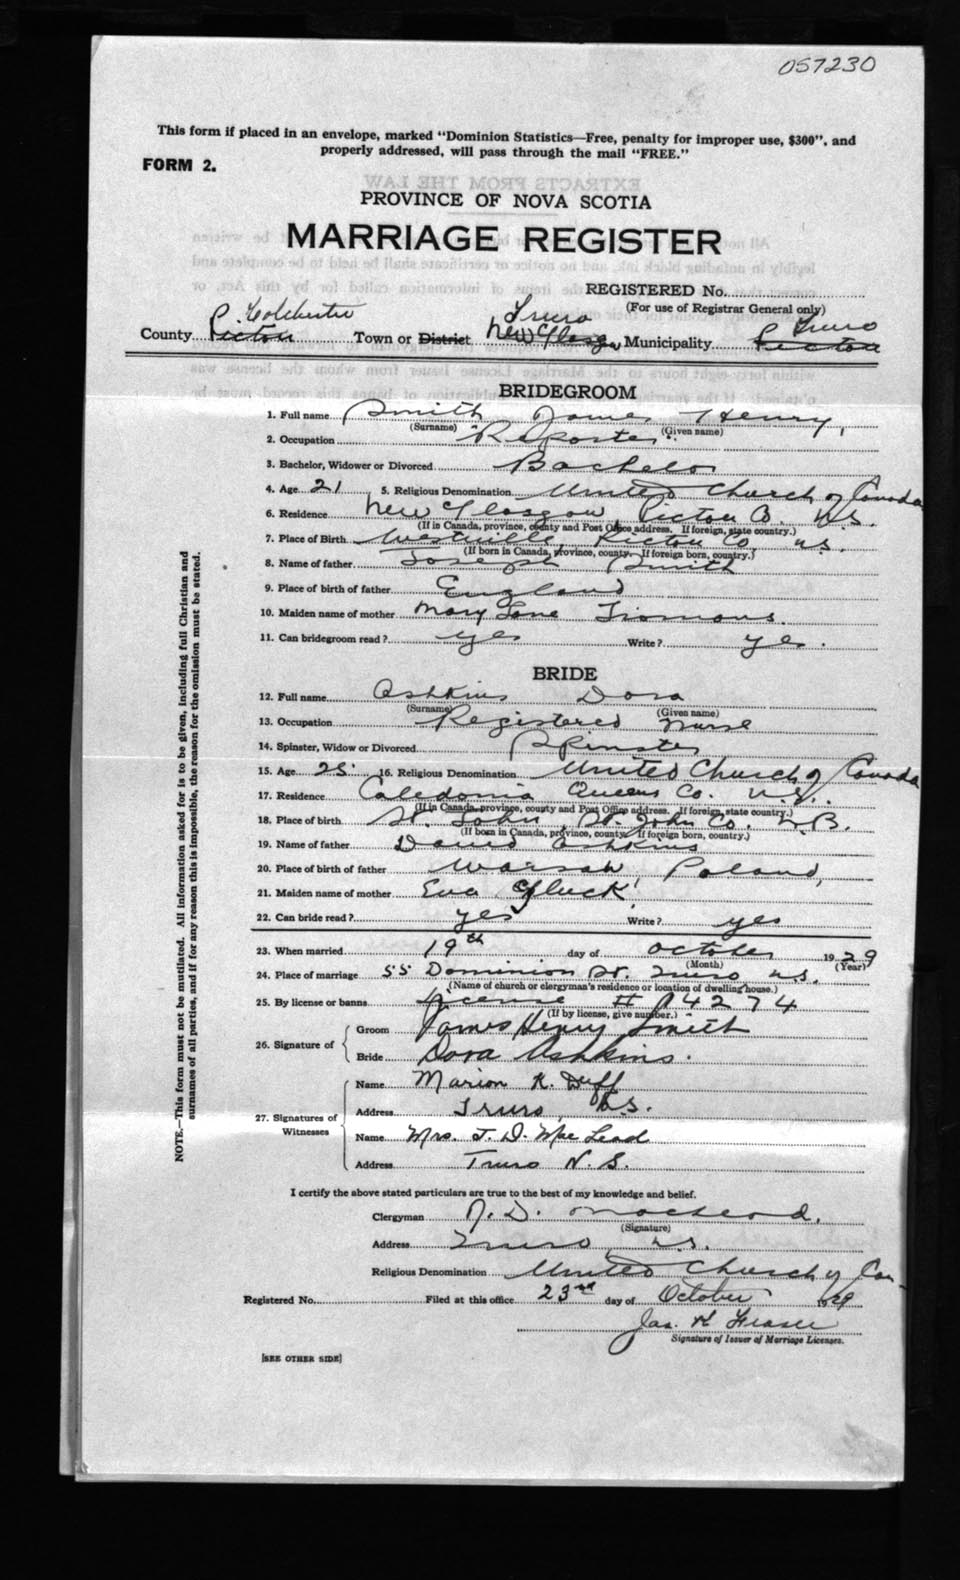 057230
This form if placed in an envelope, marked "Dominion Statistics—Free, penalty for improper use, $300", and
properly addressed, will pass through the mail "FREE."
FORM 2.
PROVINCE OF NOVA SCOTIA
MARRIAGE REGISTER
REGISTERED No.
(For use of Registrar General only)
Colchester Truro Truro
County Pictou Town or District New Glasgow Municipality Pictou
BRIDEGROOM
1. Full name Smith James Henry
(Surname) (Given name)
2. Occupation Reporter
3. Bachelor, Widower or Divorced Bachelor
4. Age 21 5. Religious Denomination United Church of Canada
6. Residence New Glasgow Pictou Co. N.S.
(If in Canada, province, county and Post Office address. If foreign, state country.)
7. Place of Birth Westville, Pictou Co. N.S.
(If born in Canada, province, county. If foreign born, country.)
8. Name of father Joseph Smith
9. Place of birth of father England
10. Maiden name of mother Mary Jane
11. Can bridegroom read? yes Write? yes.
BRIDE
12. Full name Ashkins Dora
(Surname) (Given name)
13. Occupation Registered Nurse
14. Spinster, Widow or Divorced Spinster
15. Age 25 16. Religious Denomination United Church of Canada
17. Residence Caledonia Queens Co. N.S.
(If in Canada, province, county and Post Office address. If foreign, state country.)
18. Place of birth St. John, St. John Co. N.B.
(If born in Canada, province, county. If foreign born, country.)
19. Name of father David Ashkins
20. Place of birth of father Warsaw, Poland,
21. Maiden name of mother Eva Gluck
22. Can bride read? yes Write? yes
23. When married 19th day of October 1929
(Month) (Year)
24. Place of marriage 55 Dominion St. Truro N.S.
(Name of church or clergyman's residence or location of dwelling house.)
25. By license or banns License # A4274
(If by license, give number.)
26. Signature of Groom James Henry Smith
Bride Dora Ashkins.
27. Signatures of Witnesses
Name Marion K. Duff
Address Truro, N.S.
Name Mrs. J. D. MacLeod
Address Truro N. S.
I certify the above stated particulars are true to the best of my knowledge and belief.
Clergyman J. D. MacLeod,
(Signature)
Address Truro, N.S.
Religious Denomination United Church of Can-
Registered No. Filed at this office 23rd day of October 1929
Jas. H Fraser
Signature of Issuer of Marriage Licenses.
[SEE OTHER SIDE]
NOTE.—This form must not be mutilated. All information asked for is to be given, including full Christian and
surnames of all parties, and if for any reason this is impossible, the reason for the omission must be stated.